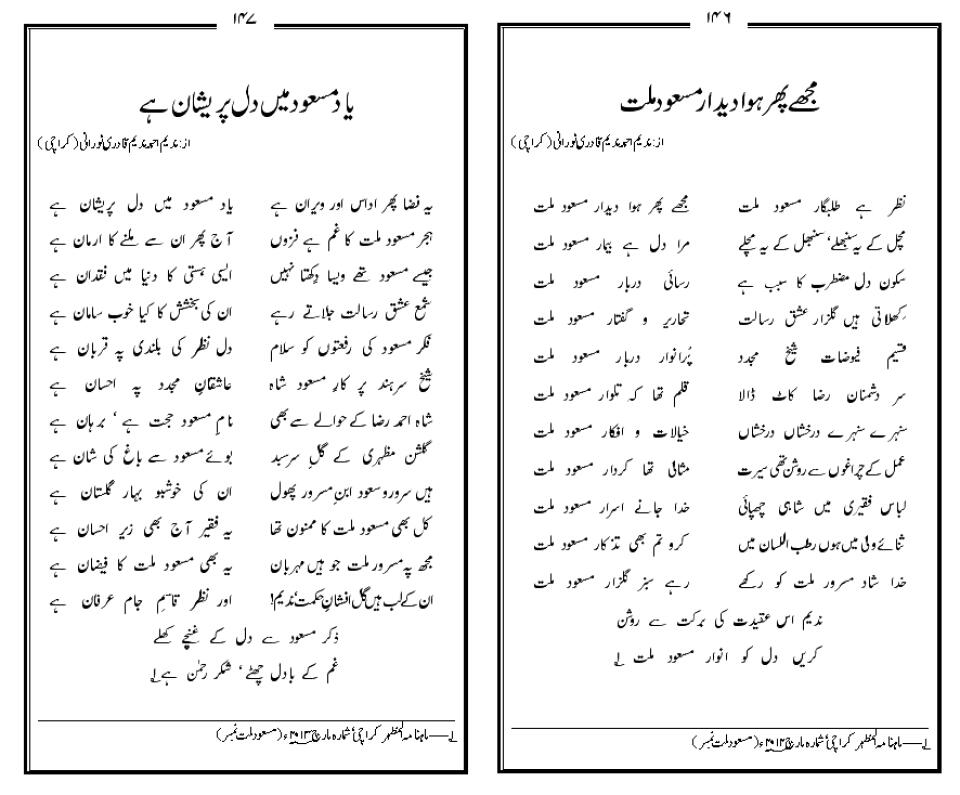 ۱۴۶
مجھے پھر ہوا دیدار مسعود ملت
از: ندیم احمد ندیم قادری نورانی (کراچی)
نظر ہے طلبگار مسعود ملت مجھے پھر ہوا دیدار مسعود ملت
مچل کے یہ سنبھلے، سنبھل کے یہ مچلے مرا دل ہے بیمار مسعود ملت
سکون دل مضطرب کا سبب ہے رسائی دربار مسعود ملت
کھلاتی ہیں گلزار عشق رسالت تحاریر و گفتار مسعود ملت
قسیم فیوضات شیخ مجدد پُرانوار دربار مسعود ملت
سر دشمنان رضا کاٹ ڈالا قلم تھا کہ تلوار مسعود ملت
سنہرے سنہرے درخشاں درخشاں خیالات و افکار مسعود ملت
عمل کے چراغوں سے روشن تھی سیرت مثالی تھا کردار مسعود ملت
لباس فقیری میں شاہی چھپائی خدا جانے اسرار مسعود ملت
ثنائے ولی میں ہوں رطب اللسان میں کرو تم بھی تذکار مسعود ملت
خدا شاد مسرور ملت کو رکھے رہے سبز گلزار مسعود ملت
ندیم اس عقیدت کی برکت سے روشن
کریں دل کو انوار مسعود ملت ۱؎
۱؎ــــ ماہنامہ المظہر کراچی، شمارہ مارچ ۲۰۱۳ء (مسعود ملت نمبر)
۱۴۷
یاد مسعود میں دل پریشان ہے
از: ندیم احمد ندیم قادری نورانی (کراچی)
یہ فضا پھر اداس اور ویران ہے یاد مسعود میں دل پریشان ہے
ہجر مسعود ملت کا غم ہے فزوں آج پھر ان سے ملنے کا ارمان ہے
جیسے مسعود تھے ویسا دِکھتا نہیں ایسی ہستی کا دنیا میں فقدان ہے
شمع عشق رسالت جلاتے رہے ان کی بخشش کا کیا خوب سامان ہے
فکر مسعود کی رفعتوں کو سلام دل نظر کی بلندی پہ قربان ہے
شیخ سرہند پر کارِ مسعود شاہ عاشقانِ مجدد پہ احسان ہے
شاہ احمد رضا کے حوالے سے بھی نامِ مسعود حجت ہے، برہان ہے
گلشن مظہری کے گلِ سرسبد بوئے مسعود سے باغ کی شان ہے
ہیں سرور و سعود ابنِ مسرور پھول ان کی خوشبو بہار گلستان ہے
کل بھی مسعود ملت کا ممنون تھا یہ فقیر آج بھی زیر احسان ہے
مجھ پہ مسرور ملت جو ہیں مہربان یہ بھی مسعود ملت کا فیضان ہے
ان کے لب ہیں گل افشانِ حکمت ندیم! اور نظر قاسمِ جام عرفان ہے
ذکر مسعود سے دل کے غنچے کھلے
غم کے بادل چھٹے، شکر رحمٰن ہے ۱؎
۱؎ــــ ماہنامہ المظہر کراچی، شمارہ مارچ ۲۰۱۳ء (مسعود ملت نمبر)